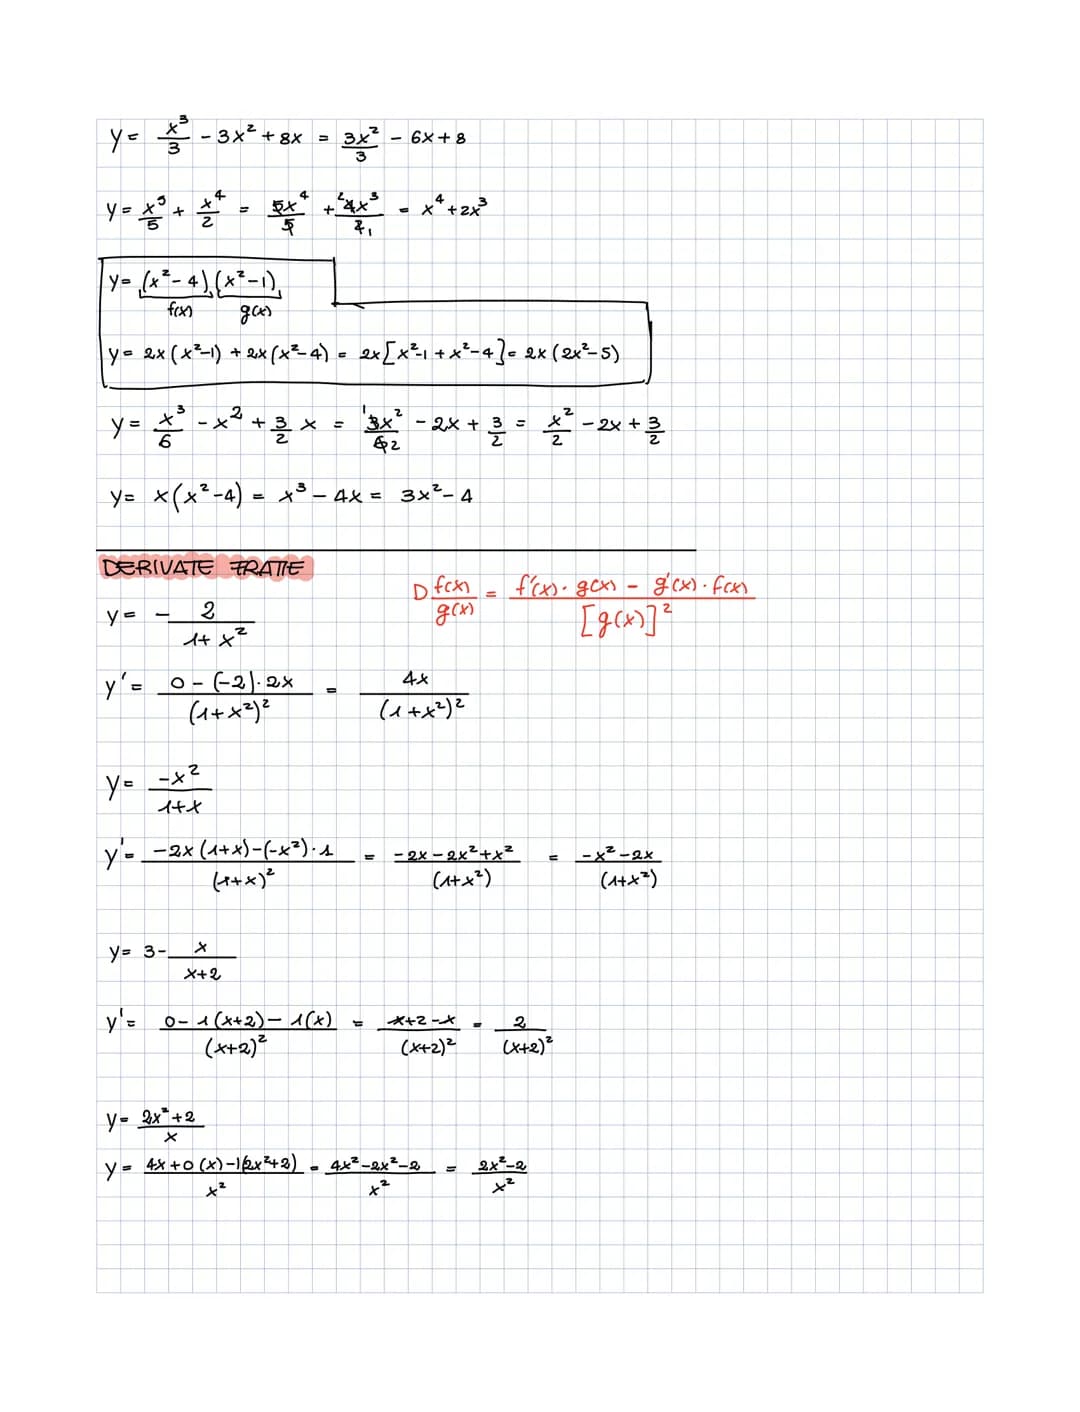 y = x³/3 - 3x² + 8x = 3x²/3 - 6x + 8
y = x⁵/5 + x⁴/2 = 5x⁴/5 + ²4x³/2₁ = x⁴ + 2x³
y = (x² - 4) (x² - 1)
f(x) g(x)
y = 2x (x²-1) + 2x (x²-4) = 2x [x²-1 + x²-4] = 2x (2x²-5)
y = x³/6 - x² + 3/2 x = ¹3x²/6 2 - 2x + 3/2 = x²/2 - 2x + 3/2
y = x (x²-4) = x³ - 4x = 3x² - 4
DERIVATE FRATTE
D f(x)/g(x) = f'(x) · g(x) - g'(x) · f(x) / [g(x)]²
y = - 2/(1+x²)
y' = 0 - (-2) · 2x / (1+x²)² = 4x / (1+x²)²
y = -x²/(1+x)
y' = -2x (1+x) - (-x²) · 1 / (1+x)² = -2x - 2x² + x² / (1+x²) = -x² - 2x / (1+x²)
y = 3 - x/(x+2)
y' = 0 - 1 (x+2) - 1(x) / (x+2)² = x+2-x / (x+2)² = 2 / (x+2)²
y = 2x²+2 / x
y = 4x+0 (x) - 1(2x²+2) / x² = 4x²-2x²-2 / x² = 2x²-2 / x²